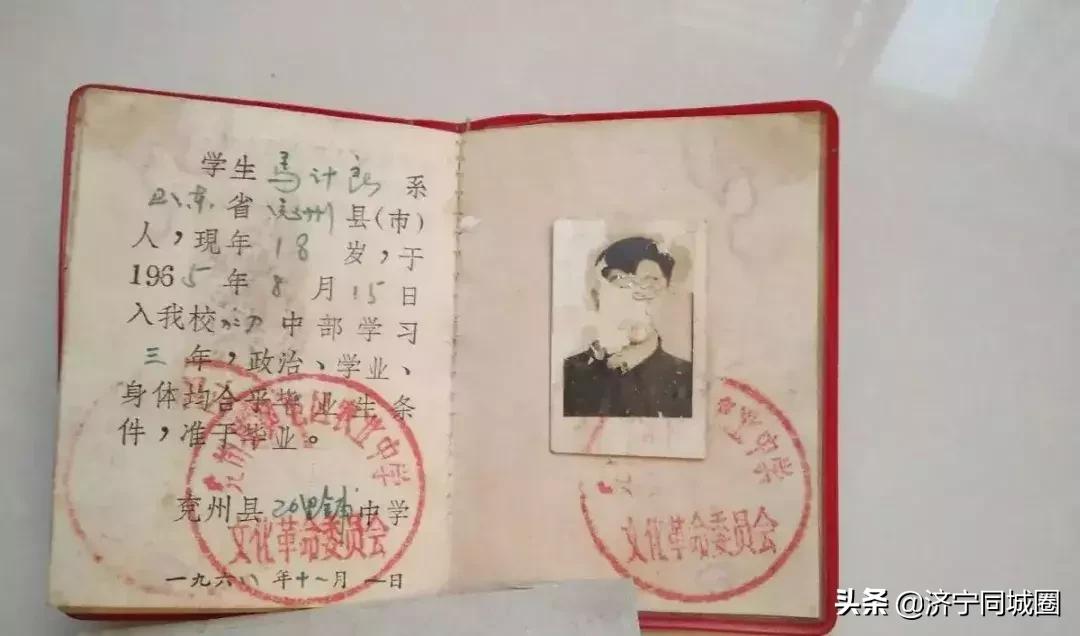 学生 马计良 系
山东 省 兖州 县(市)
人，现年 18 岁，于
1965 年 8 月 15 日
入我校 初 中部学习
三 年，政治、学业、
身体均合乎毕业生条
件，准于毕业。
兖州县 20里铺 中学
文化革命委员会
一九六八年十一月 一日
中学
文化革命委员会
头条 @济宁同城圈